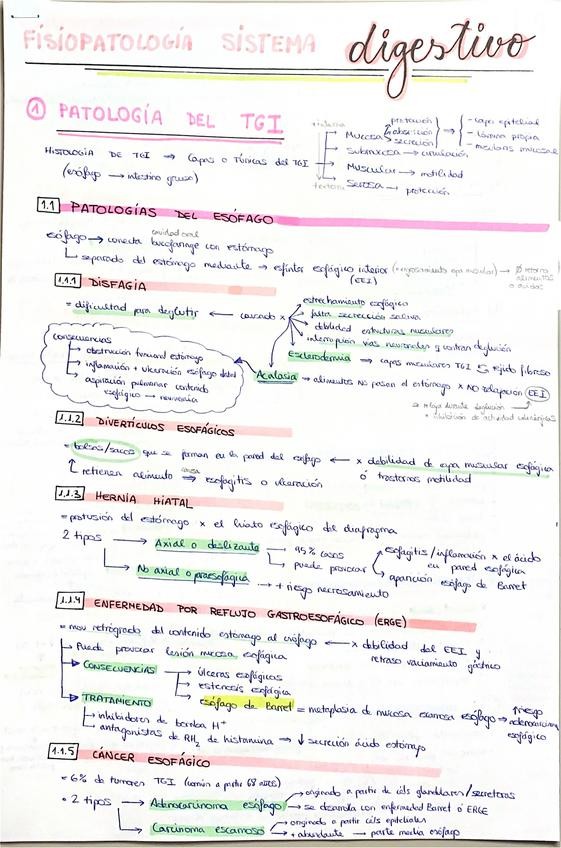 FISIOPATOLOGÍA SISTEMA digestivo
① PATOLOGÍA DEL TGI
HISTOLOGÍA DE TGI → Capas o Túnicas del TGI
(esófago → intestino grueso)
Mucosa
protección
absorción
secreción
- capa epitelial
- lámina propia
- muscularis mucosae
Submucosa → circulación
Muscular → motilidad
Serosa → protección
1.1 PATOLOGÍAS DEL ESÓFAGO
cavidad oral
esófago → conecta bucofaringe con estómago
separado del estómago mediante → esfínter esofágico inferior (engrosamiento capa muscular) → Ø retorno alimentos o ácidos
(EEI)
1.1.1 DISFAGIA
= dificultad para deglutir ← causado x
estrechamiento esofágico
falta secrección saliva
debilidad estructuras musculares
interrupción vías neuronales q contran deglución
Esclerodermia → capas musculares TGI S tejido fibroso
Acalasia → alimentos no pasan al estómago x NO relajación EEI
se relaja durante deglución
consecuencias
obstrucción forward estómago
inflamación + ulceración esófago distal
aspiración pulmonar contenido
esofágico → neumonía
1.1.2 DIVERTÍCULOS ESOFÁGICOS
= bolsas/sacos que se forman en la pared del esófago ← x debilidad de capa muscular esofágica
ó trastornos motilidad
retienen alimento causa ⇒ esofagitis o ulceración
1.1.3 HERNIA HIATAL
= protusión del estómago x el hiato esofágico del diafragma
2 tipos → Axial o deslizante
95% casos
puede provocar
esofagitis/inflamación x el ácido
en pared esofágica
aparición esófago de Barret
No axial o paraesofágica → + riesgo necrosamiento
1.1.4 ENFERMEDAD POR REFLUJO GASTROESOFÁGICO (ERGE)
= mov retrógrado del contenido estómago al esófago ← x debilidad del EEI y
retraso vaciamiento gástrico
Puede provocar lesión mucosa esofágica
CONSECUENCIAS
úlceras esofágicas
estenosis esofágica
esófago de Barret = metaplasia de mucosa escamosa esófago → riesgo adenocarcinoma esofágico
TRATAMIENTO
inhibidores de bomba H⁺
antagonistas de RH₂ de histamina → ↓ secreción ácido estómago
1.1.5 CÁNCER ESOFÁGICO
= 6% de tumores TGI (común a partir 68 años)
• 2 tipos → Adenocarcinoma esófago
originado a partir de céls glandulares/secretoras
se desarrolla con enfermedad Barret ó ERGE
Carcinoma escamoso
originado a partir céls epiteliales
+ abundante → parte media esófago